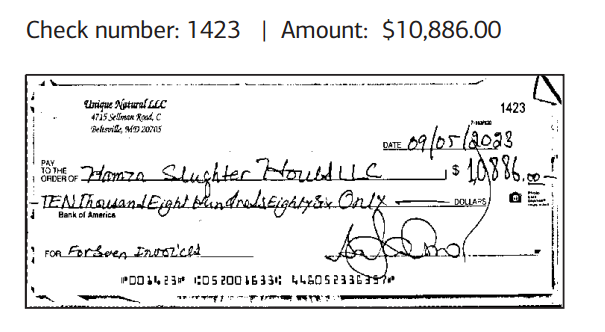 Check number: 1423 | Amount: $10,886.00
Unique Natural LLC
4715 Sellman Road, C
Beltsville, MD 20705
1423
DATE 09/05/2023
PAY
TO THE
ORDER OF Hamza Slughter House LLC $ 10,886.00
TEN Thousand Eight Hundreds Eighty Six Only DOLLARS
Bank of America
FOR For Seven Invoices
⑈001423⑈ ⑆052001633⑆ 446052336397⑈